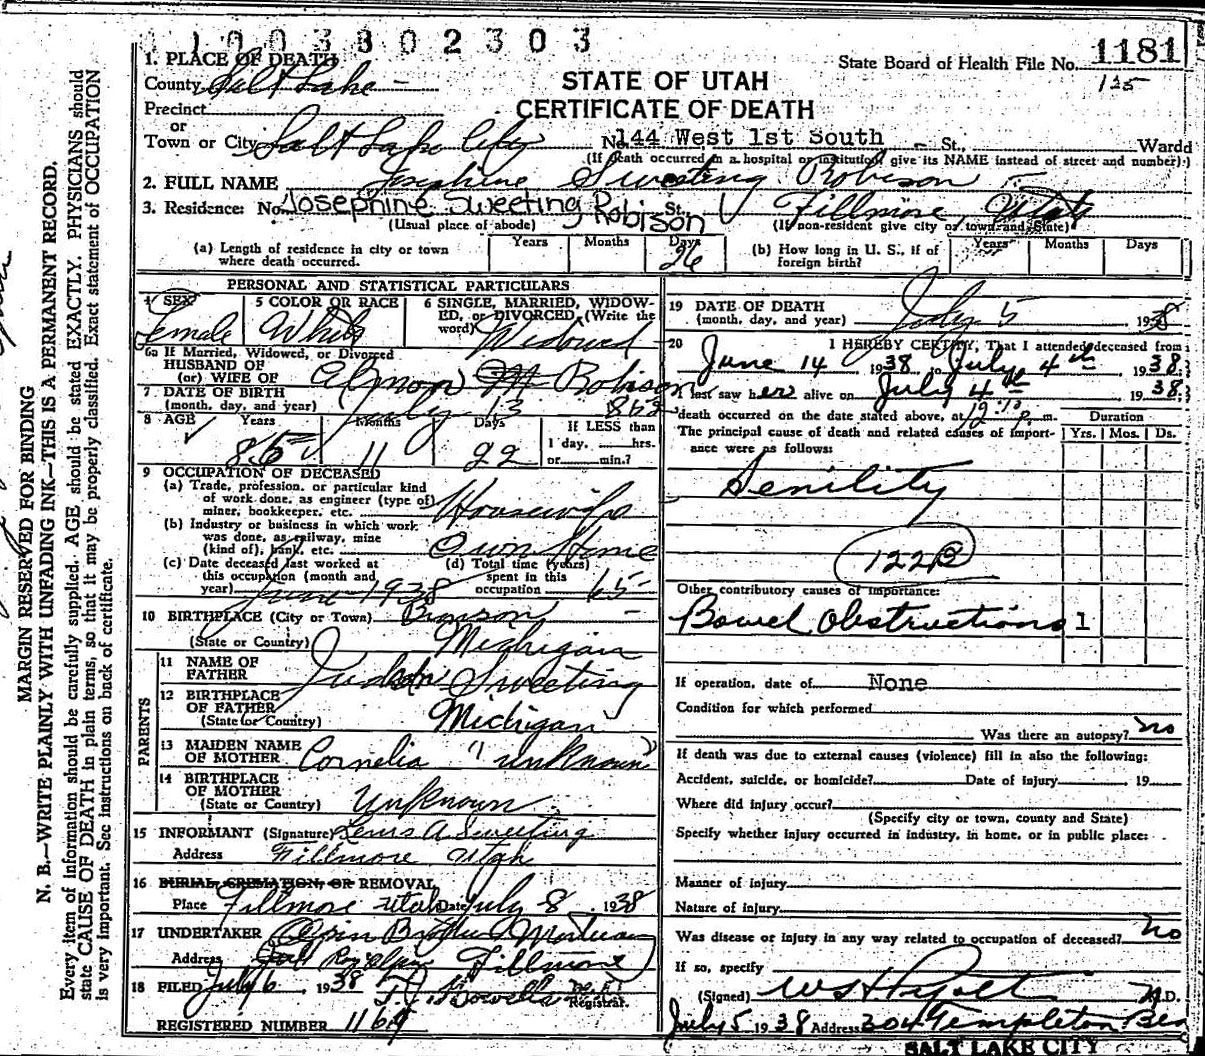 1003802303
1. PLACE OF DEATH
State Board of Health File No. 1181
County Salt Lake -
125
STATE OF UTAH
CERTIFICATE OF DEATH
Precinct
or
Town or City Salt Lake City No. 144 West 1st South - St., Wardd
(If death occurred in a hospital or institution, give its NAME instead of street and number.)
2. FULL NAME Josephine Sweeting Robison
3. Residence: No. Josephine Sweeting Robison St., Fillmore, Utah
(Usual place of abode) (If non-resident give city or town and State)
(a) Length of residence in city or town where death occurred. Years Months Days 26
(b) How long in U. S., if of foreign birth? Years Months Days
PERSONAL AND STATISTICAL PARTICULARS
4 SEX Female
5 COLOR OR RACE White
6 SINGLE, MARRIED, WIDOWED, or DIVORCED, (Write the word) Widowed
6a If Married, Widowed, or Divorced
HUSBAND OF
(or) WIFE OF Almon Robison
7 DATE OF BIRTH
(month, day, and year) July 13 1852
8 AGE Years 85 Months 11 Days 22
If LESS than
1 day, hrs.
or min.?
9 OCCUPATION OF DECEASED
(a) Trade, profession, or particular kind
of work done, as engineer (type of)
miner, bookkeeper, etc. Housewife
(b) Industry or business in which work
was done, as railway, mine
(kind of), bank, etc. Own Home
(c) Date deceased last worked at
this occupation (month and
year) June 1938
(d) Total time (years)
spent in this
occupation 65-
10 BIRTHPLACE (City or Town) Bronson
(State or Country) Michigan
PARENTS
11 NAME OF
FATHER Judson Sweeting
12 BIRTHPLACE
OF FATHER
(State or Country) Michigan
13 MAIDEN NAME
OF MOTHER Cornelia "unknown"
14 BIRTHPLACE
OF MOTHER
(State or Country) Unknown.
15 INFORMANT (Signature) Lewis A Sweeting
Address Fillmore Utah
16 BURIAL, CREMATION, OR REMOVAL
Place Fillmore Utah Date July 8, 1938
17 UNDERTAKER Olpin Brothers Mortuary
Address Fillmore
18 FILED July 6, 1938 Registrar.
REGISTERED NUMBER
19 DATE OF DEATH
(month, day, and year) July 5 1938
20 I HEREBY CERTIFY, That I attended deceased from
June 14, 1938, to July 4th 1938;
I last saw her alive on July 4th 1938;
death occurred on the date stated above, at 12:10 p. m.
Duration
The principal cause of death and related causes of importance were as follows: Yrs. Mos. Ds.
Senility
122B
Other contributory causes of importance:
Bowel Obstructions 1
If operation, date of None
Condition for which performed
Was there an autopsy? no
If death was due to external causes (violence) fill in also the following:
Accident, suicide, or homicide? Date of injury 19
Where did injury occur?
(Specify city or town, county and State)
Specify whether injury occurred in industry, in home, or in public place:
Manner of injury
Nature of injury
Was disease or injury in any way related to occupation of deceased? No
If so, specify
(Signed) M.D.
July 5 1938 Address 304 Templeton
SALT LAKE CITY
MARGIN RESERVED FOR BINDING
N. B.—WRITE PLAINLY WITH UNFADING INK—THIS IS A PERMANENT RECORD.
Every item of information should be carefully supplied. AGE should be stated EXACTLY. PHYSICIANS should
state CAUSE OF DEATH in plain terms, so that it may be properly classified. Exact statement of OCCUPATION
is very important. See instructions on back of certificate.